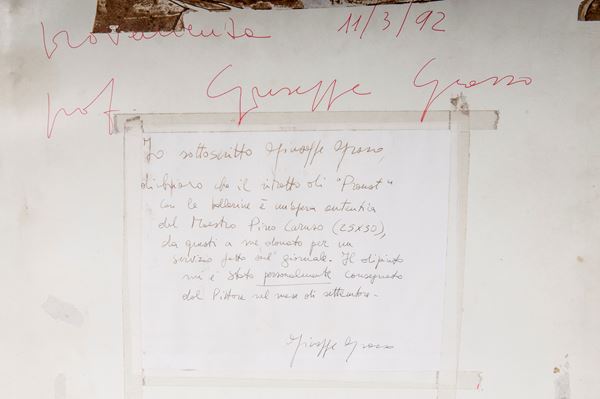 provenienza 11/3/92
prof. Giuseppe Grasso
Io sottoscritto Giuseppe Grasso,
dichiaro che il ritratto di "Proust"
con le ballerine è un'opera autentica
del Maestro Pino Caruso (25x30),
da questi a me donato per un
servizio fatto sul giornale. Il dipinto
mi è stato personalmente consegnato
dal Pittore nel mese di settembre.
Giuseppe Grasso